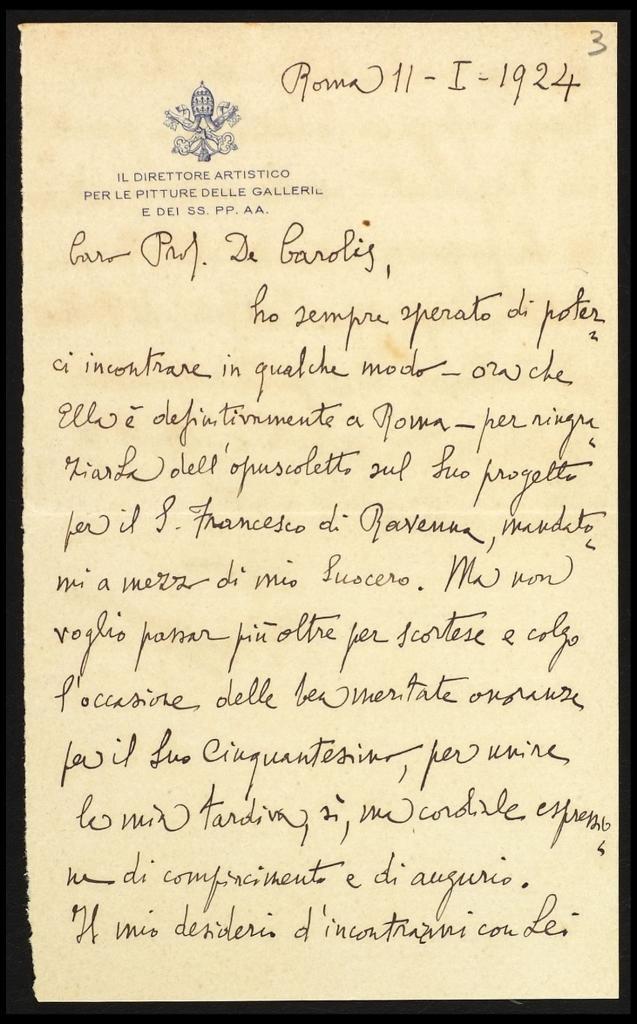 3
Roma 11 - I - 1924
IL DIRETTORE ARTISTICO
PER LE PITTURE DELLE GALLERIE
E DEI SS. PP. AA.
Caro Prof. De Carolis,
ho sempre sperato di poter=
ci incontrare in qualche modo - ora che
Ella è definitivamente a Roma - per ringra=
ziarLa dell'opuscoletto sul Suo progetto
per il S. Francesco di Ravenna, mandato=
mi a mezzo di mio Suocero. Ma non
voglio passar più oltre per scortese e colgo
l'occasione delle ben meritate onoranze
per il Suo Cinquantesimo, per unire
la mia tardiva, sì, ma cordiale espressio=
ne di compiacimento e di augurio.
Il mio desiderio d'incontrarmi con Lei